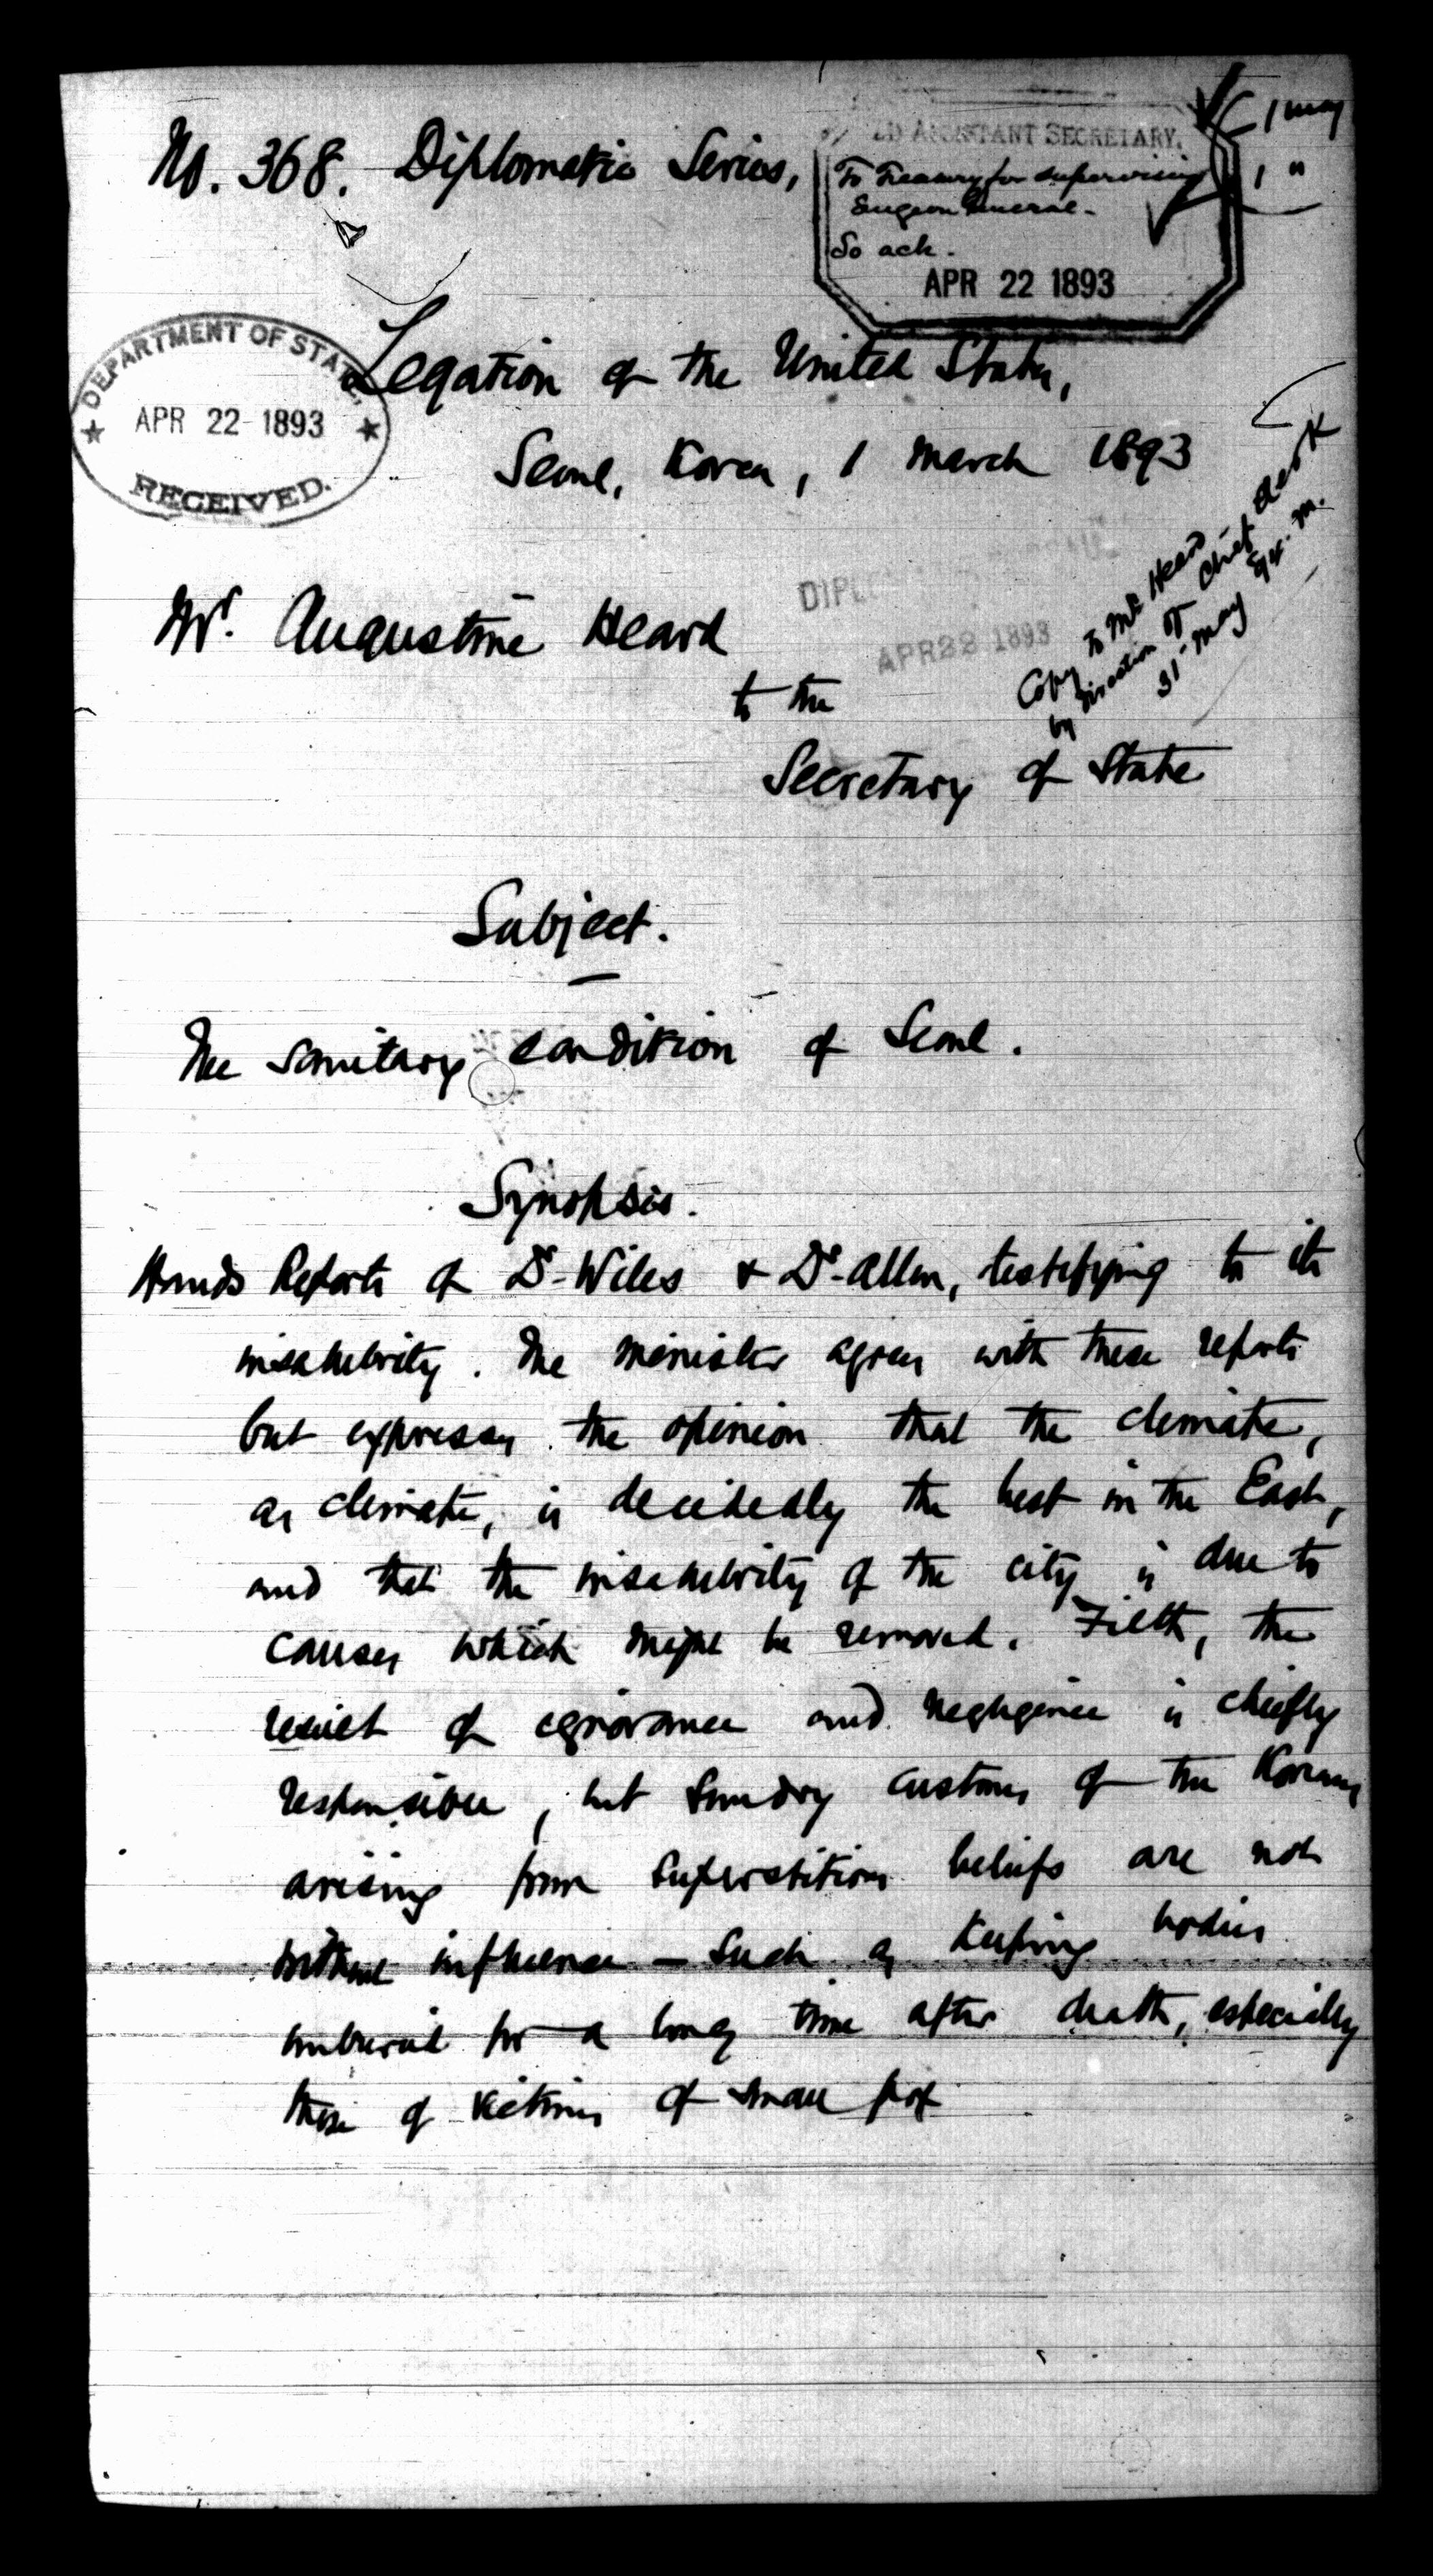 No. 368. Diplomatic Series,
ASSISTANT SECRETARY.
To Treasury for supervising
Surgeon General.
So ack.
APR 22 1893
1 May
1 "
DEPARTMENT OF STATE
APR 22 1893
RECEIVED.
Legation of the United States,
Seoul, Korea, 1 March 1893
Mr. Augustine Heard
to the
Secretary of State
APR 22 1893
Copy to Mr. Heard
by direction of Chief Clerk
31 May 94. M.
Subject.
The sanitary condition of Seoul.
Synopsis.
Hands Reports of Dr. Wiles & Dr. Allen, testifying to its
insalubrity. The Minister agrees with these reports
but expresses the opinion that the climate,
as climate, is decidedly the best in the East,
and that the insalubrity of the city is due to
causes which might be removed. Filth, the
result of ignorance and negligence is chiefly
responsible, but sundry customs of the Koreans
arising from superstitious beliefs are not
without influence – such as keeping bodies
unburied for a long time after death, especially
those of victims of small pox